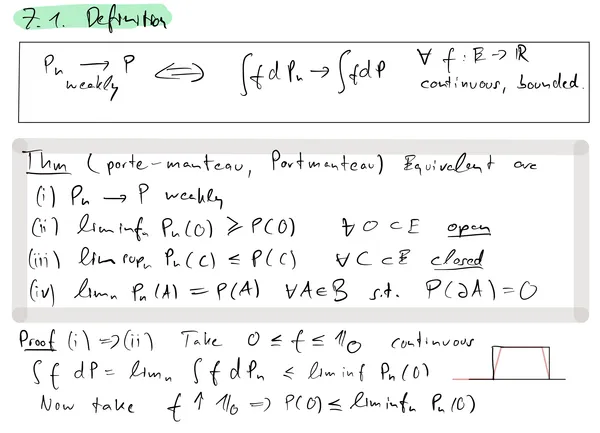 7.1. Definition
Pn → P weakly ⟺ ∫f dPn → ∫f dP ∀ f : E → ℝ continuous, bounded.
Thm (porte-manteau, Portmanteau) Equivalent are
(i) Pn → P weakly
(ii) liminfn Pn(O) ≥ P(O) ∀ O ⊂ E open
(iii) limsupn Pn(C) ≤ P(C) ∀ C ⊂ E closed
(iv) limn Pn(A) = P(A) ∀A∈B s.t. P(∂A)=0
Proof (i) ⟹ (ii) Take 0 ≤ f ≤ 𝟙O continuous
∫f dP = limn ∫f dPn ≤ liminf Pn(O)
Now take f ↑ 𝟙O ⟹ P(O) ≤ liminfn Pn(O)